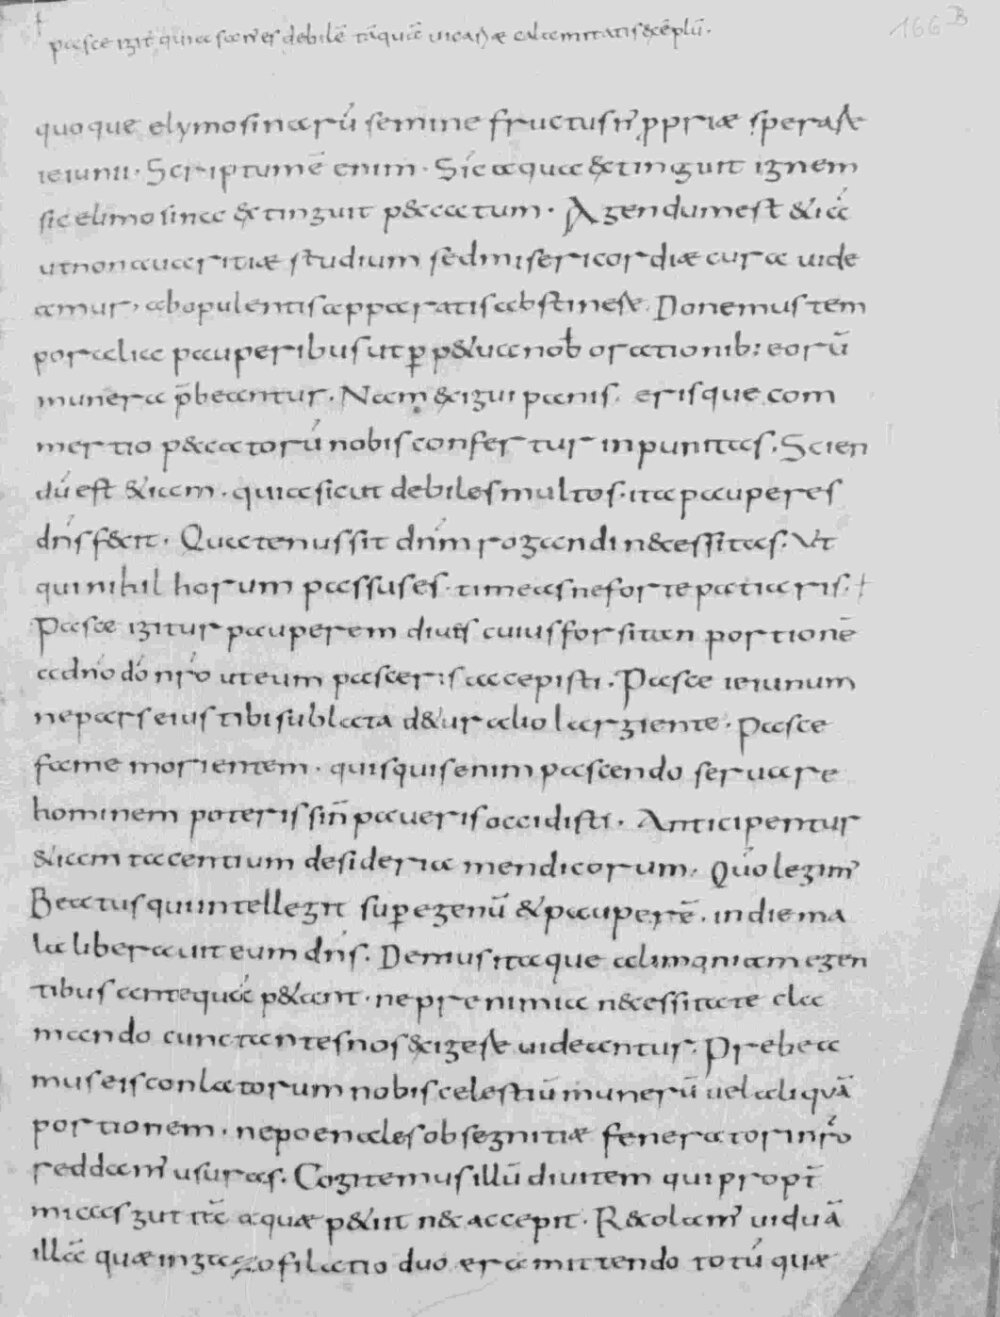 † pasce igit̄ quia san̄ es debilē tāquā uicariæ calamitatis exēplū.
166
quoque elymosinarū semine fructus n̄ propriæ sperase
ieiunii. Scriptum ē enim. Sic aqua extinguit ignem
sic elimosina extinguit peccatum. Agendum est etiā
ut non auaritiæ studium sed misericordiæ cura uide
amur, ab opulentis apparatis abstinese. Donemus tem
poralia pauperibus ut ꝑpetua nob̄ orationib; eorū
munera p̄beantur. Nam exigui panis, erisque com
mertio peccatorū nobis confertur inpunitas. Scien
dū est etiam. quia sicut debiles multos. ita pauperes
dn̄s fecit. Quatenus sit dn̄m rogandi necessitas. Ut
qui nihil horum passus es. timeas ne forte patiaris. †
Pasce igitur pauperem diues cuius forsitan portionē
a dn̄o dō nr̄o ut eum pasceris accepisti. Pasce ieiunum
ne pars eius tibi sublata detur alio largiente. Pasce
fame morientem. quisquis enim pascendo seruare
hominem poteris sin̄ paueris occidisti. Anticipentur
etiam tacentium desideria mendicorum. Quō legim̄
Beatus qui intellegit suꝑ egenū et pauperē. in die ma
la liberauit eum dn̄s. Demus itaque alimoniam egen
tibus antequā petant. ne pre nimia necessitate cla
mando cunctantes nos exigese uideantur. Prebea
mus eis conlatorum nobis celestiū munerū uel aliquā
portionem. ne poenales ob segnitiæ feneratori nr̄o
reddam̄ usuras. Cogitemus illū diuitem qui propt̄
micas guttā aquæ petiit nec accepit. Recolam̄ uiduā
illā quæ in gazofilatio duo era mittendo totū quæ